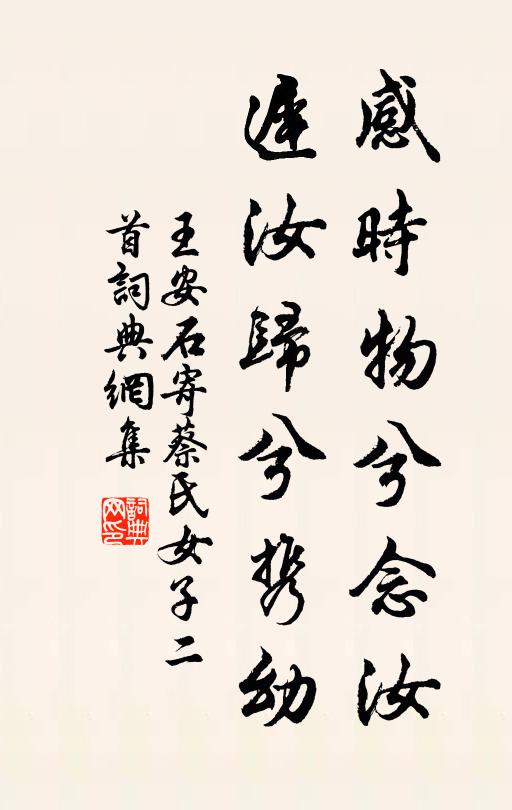 感時物兮念汝
遲汝歸兮携幼
王安石寄蔡氏女子二
首詞典網集
詞典
网印